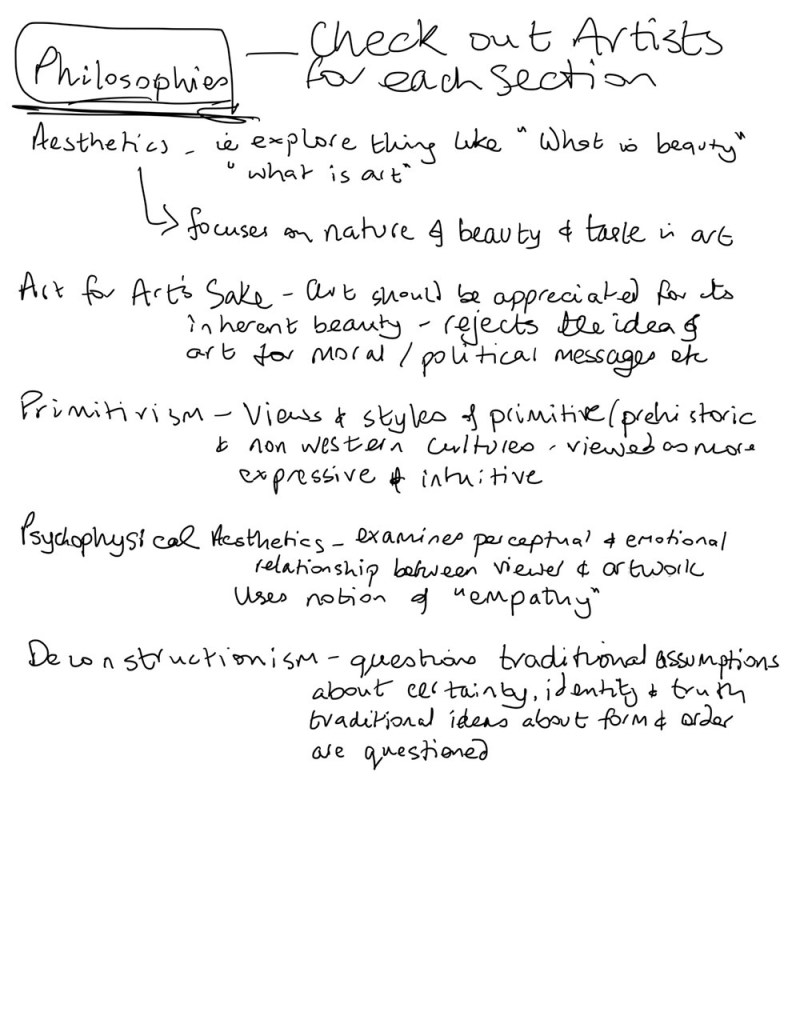 Philosophies — Check out Artists
for each section
Aesthetics - ie explore thing like "What is beauty"
"what is art"
focuses on nature of beauty & taste in art
Art for Art's Sake - art should be appreciated for its
inherent beauty - rejects the idea of
art for moral / political messages etc
Primitivism - Views & styles of primitive/prehistoric
& non western cultures - viewed as more
expressive & intuitive
Psychophysical Aesthetics - examines perceptual & emotional
relationship between viewer & artwork
Uses notion of "empathy"
Deconstructionism - questions traditional assumptions
about certainty, identity & truth
traditional ideas about form & order
are questioned